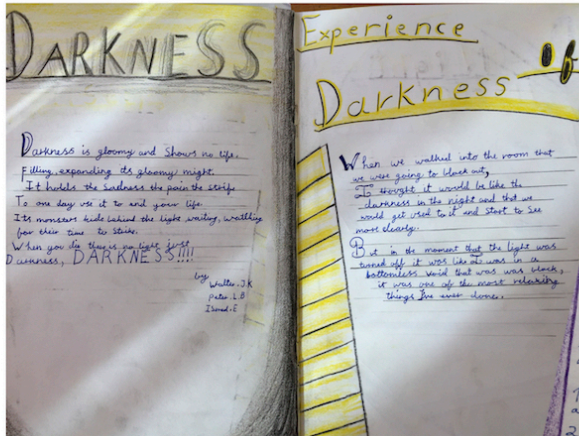 DARKNESS
Darkness is gloomy and shows no life.
Filling, expanding its gloomy might.
It holds the sadness the pain the strife
To one day use it to end your life.
Its monsters hide behind the light waiting, waiting
for their time to strike.
When you die there is no light just
Darkness, DARKNESS!!!!
by
Walter.J.K
Peter.L.B
E
Experience
Darkness
When we walked into the room that
we were going to black out,
I thought it would be like the
darkness in the night and that we
would get used to it and start to see
more clearly.
But in the moment that the light was
turned off it was like I was in a
bottomless void that was was black,
it was one of the most relaxing
things I've ever done.